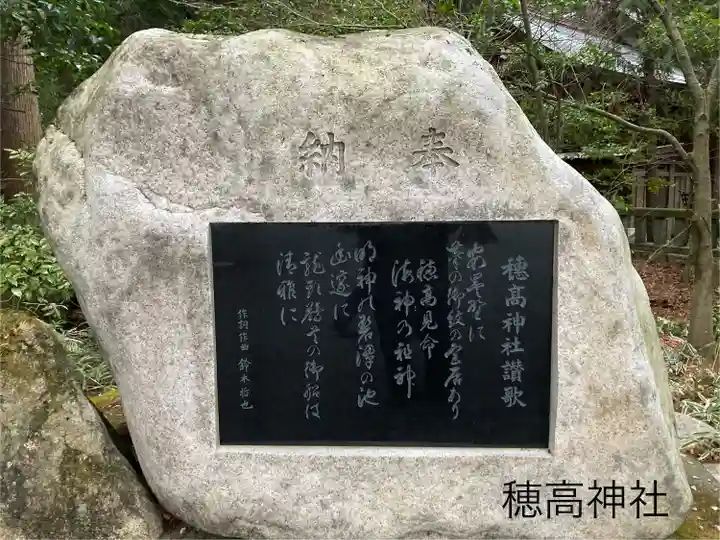 奉納
穂高神社讃歌
安曇野に
菊の御紋の宮居あり
穂高見命
海神の祖神
明神の碧澄の池
幽邃に
龍頭鷁首の御船は
清雅に
作詞作曲 鈴木裕也
穂高神社